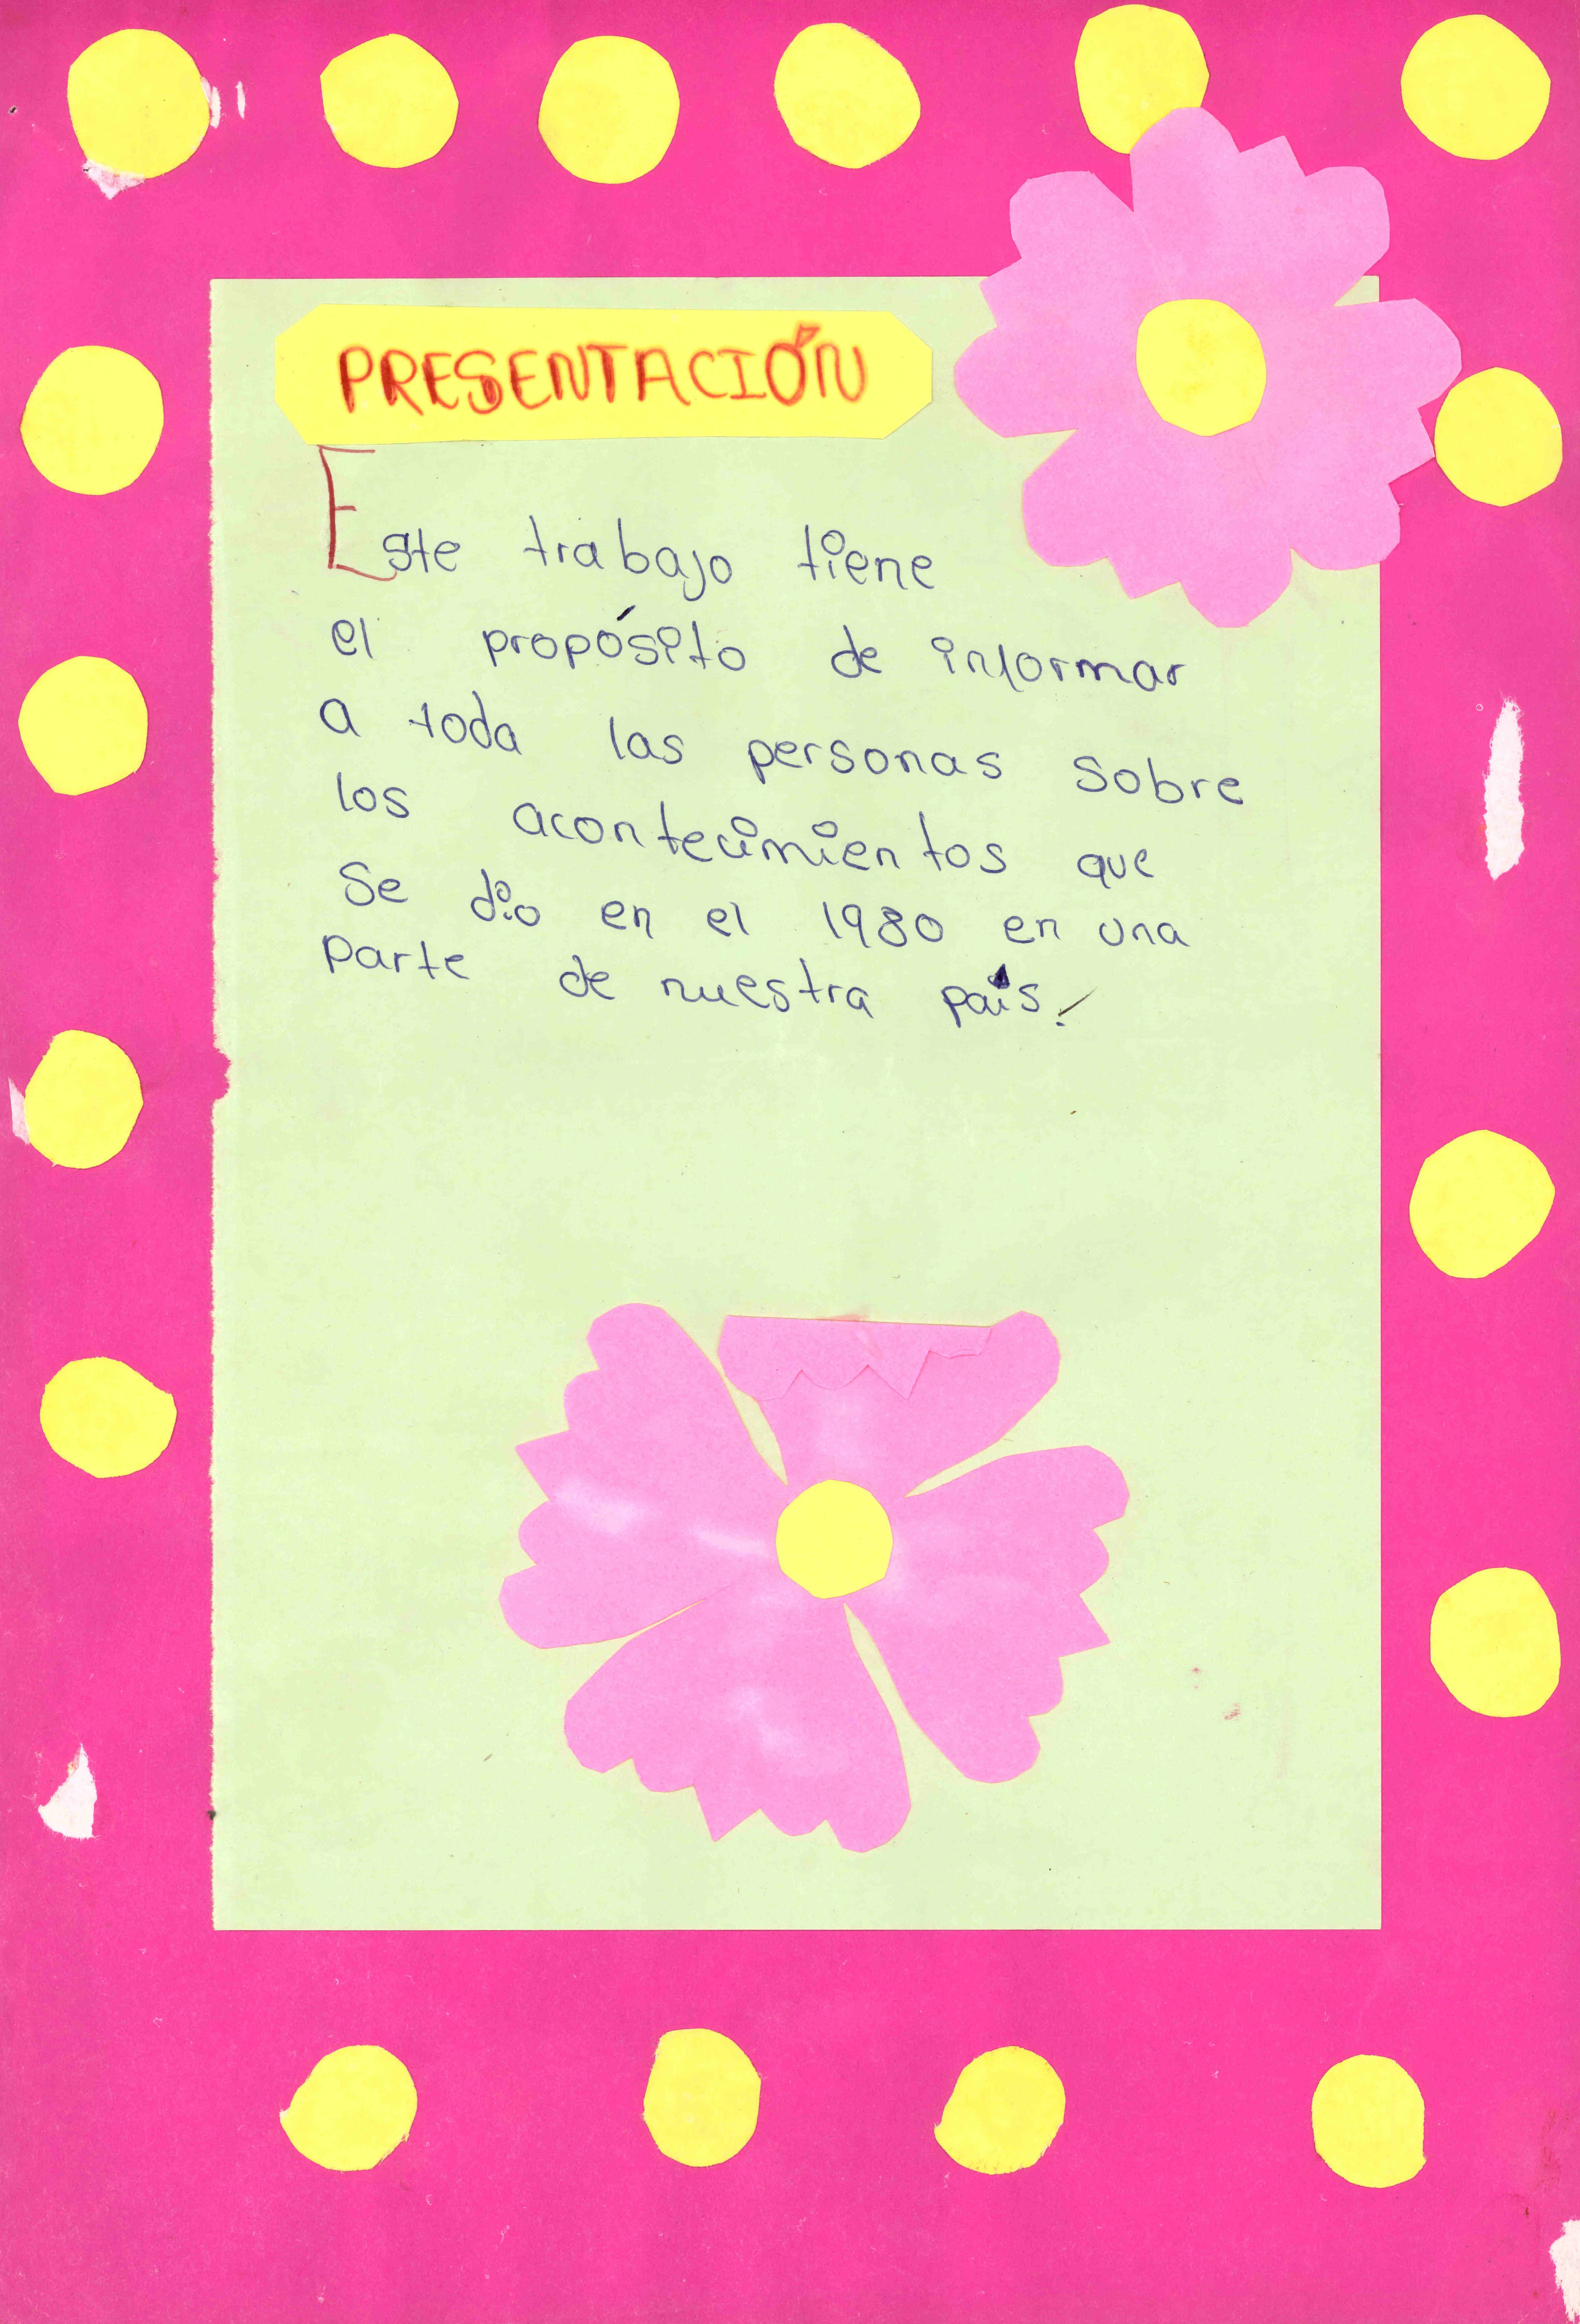 PRESENTACIÓN
Este trabajo tiene
el propósito de informar
a toda las personas sobre
los acontecimientos que
Se dio en el 1980 en una
parte de nuestra país.